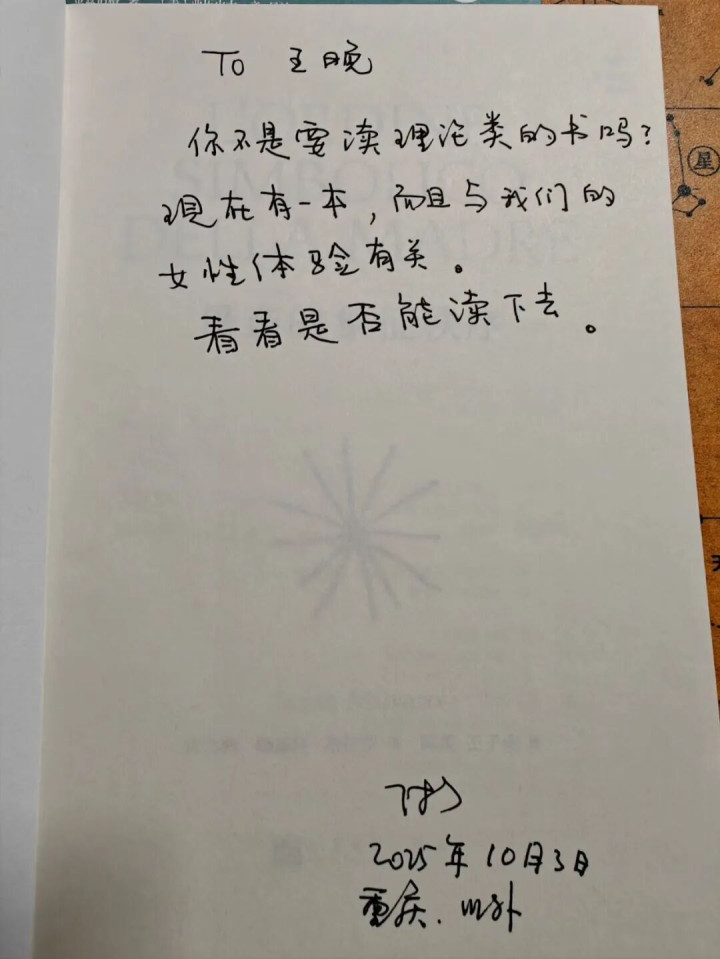 To 王晚
你不是要读理论类的书吗？
现在有一本，而且与我们的
女性体验有关。
看看是否能读下去。
2025年10月3日
重庆.川外
星